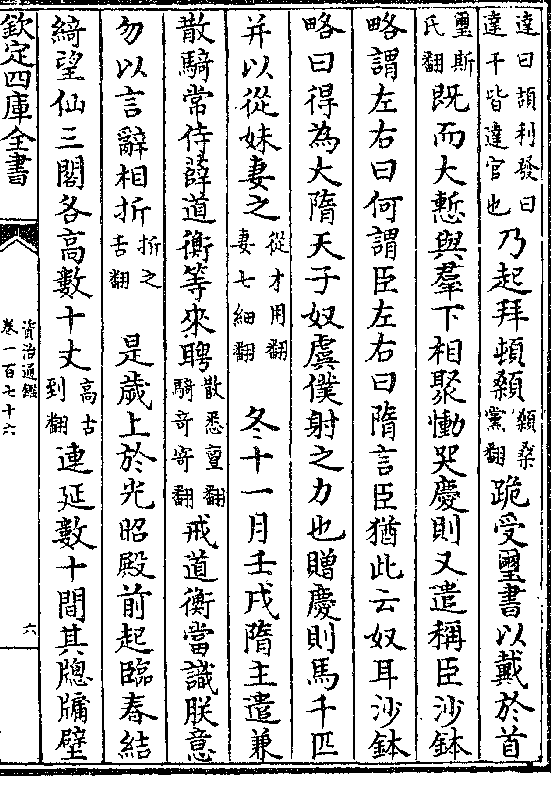 達曰頡利發曰
達干皆達官也乃起拜頓顙顙桑
黨翻跪受璽書以戴於首
璽斯
氏翻既而大慙與羣下相聚慟哭慶則又遣稱臣沙鉢
略謂左右曰何謂臣左右曰隋言臣猶此云奴耳沙鉢
略曰得為大隋天子奴虞僕射之力也贈慶則馬千匹
并以從妹妻之從才用翻
妻七細翻冬十一月壬戌隋主遣兼
散騎常侍薛道衡等來聘散悉亶翻
騎奇寄翻戒道衡當識朕意
勿以言辭相折折之
舌翻是歲上於光昭殿前起臨春結
綺望仙三閣各高數十丈高古
到翻連延數十間其牕牖壁
欽定四庫全書
資治通鑑
卷一百七十六
六